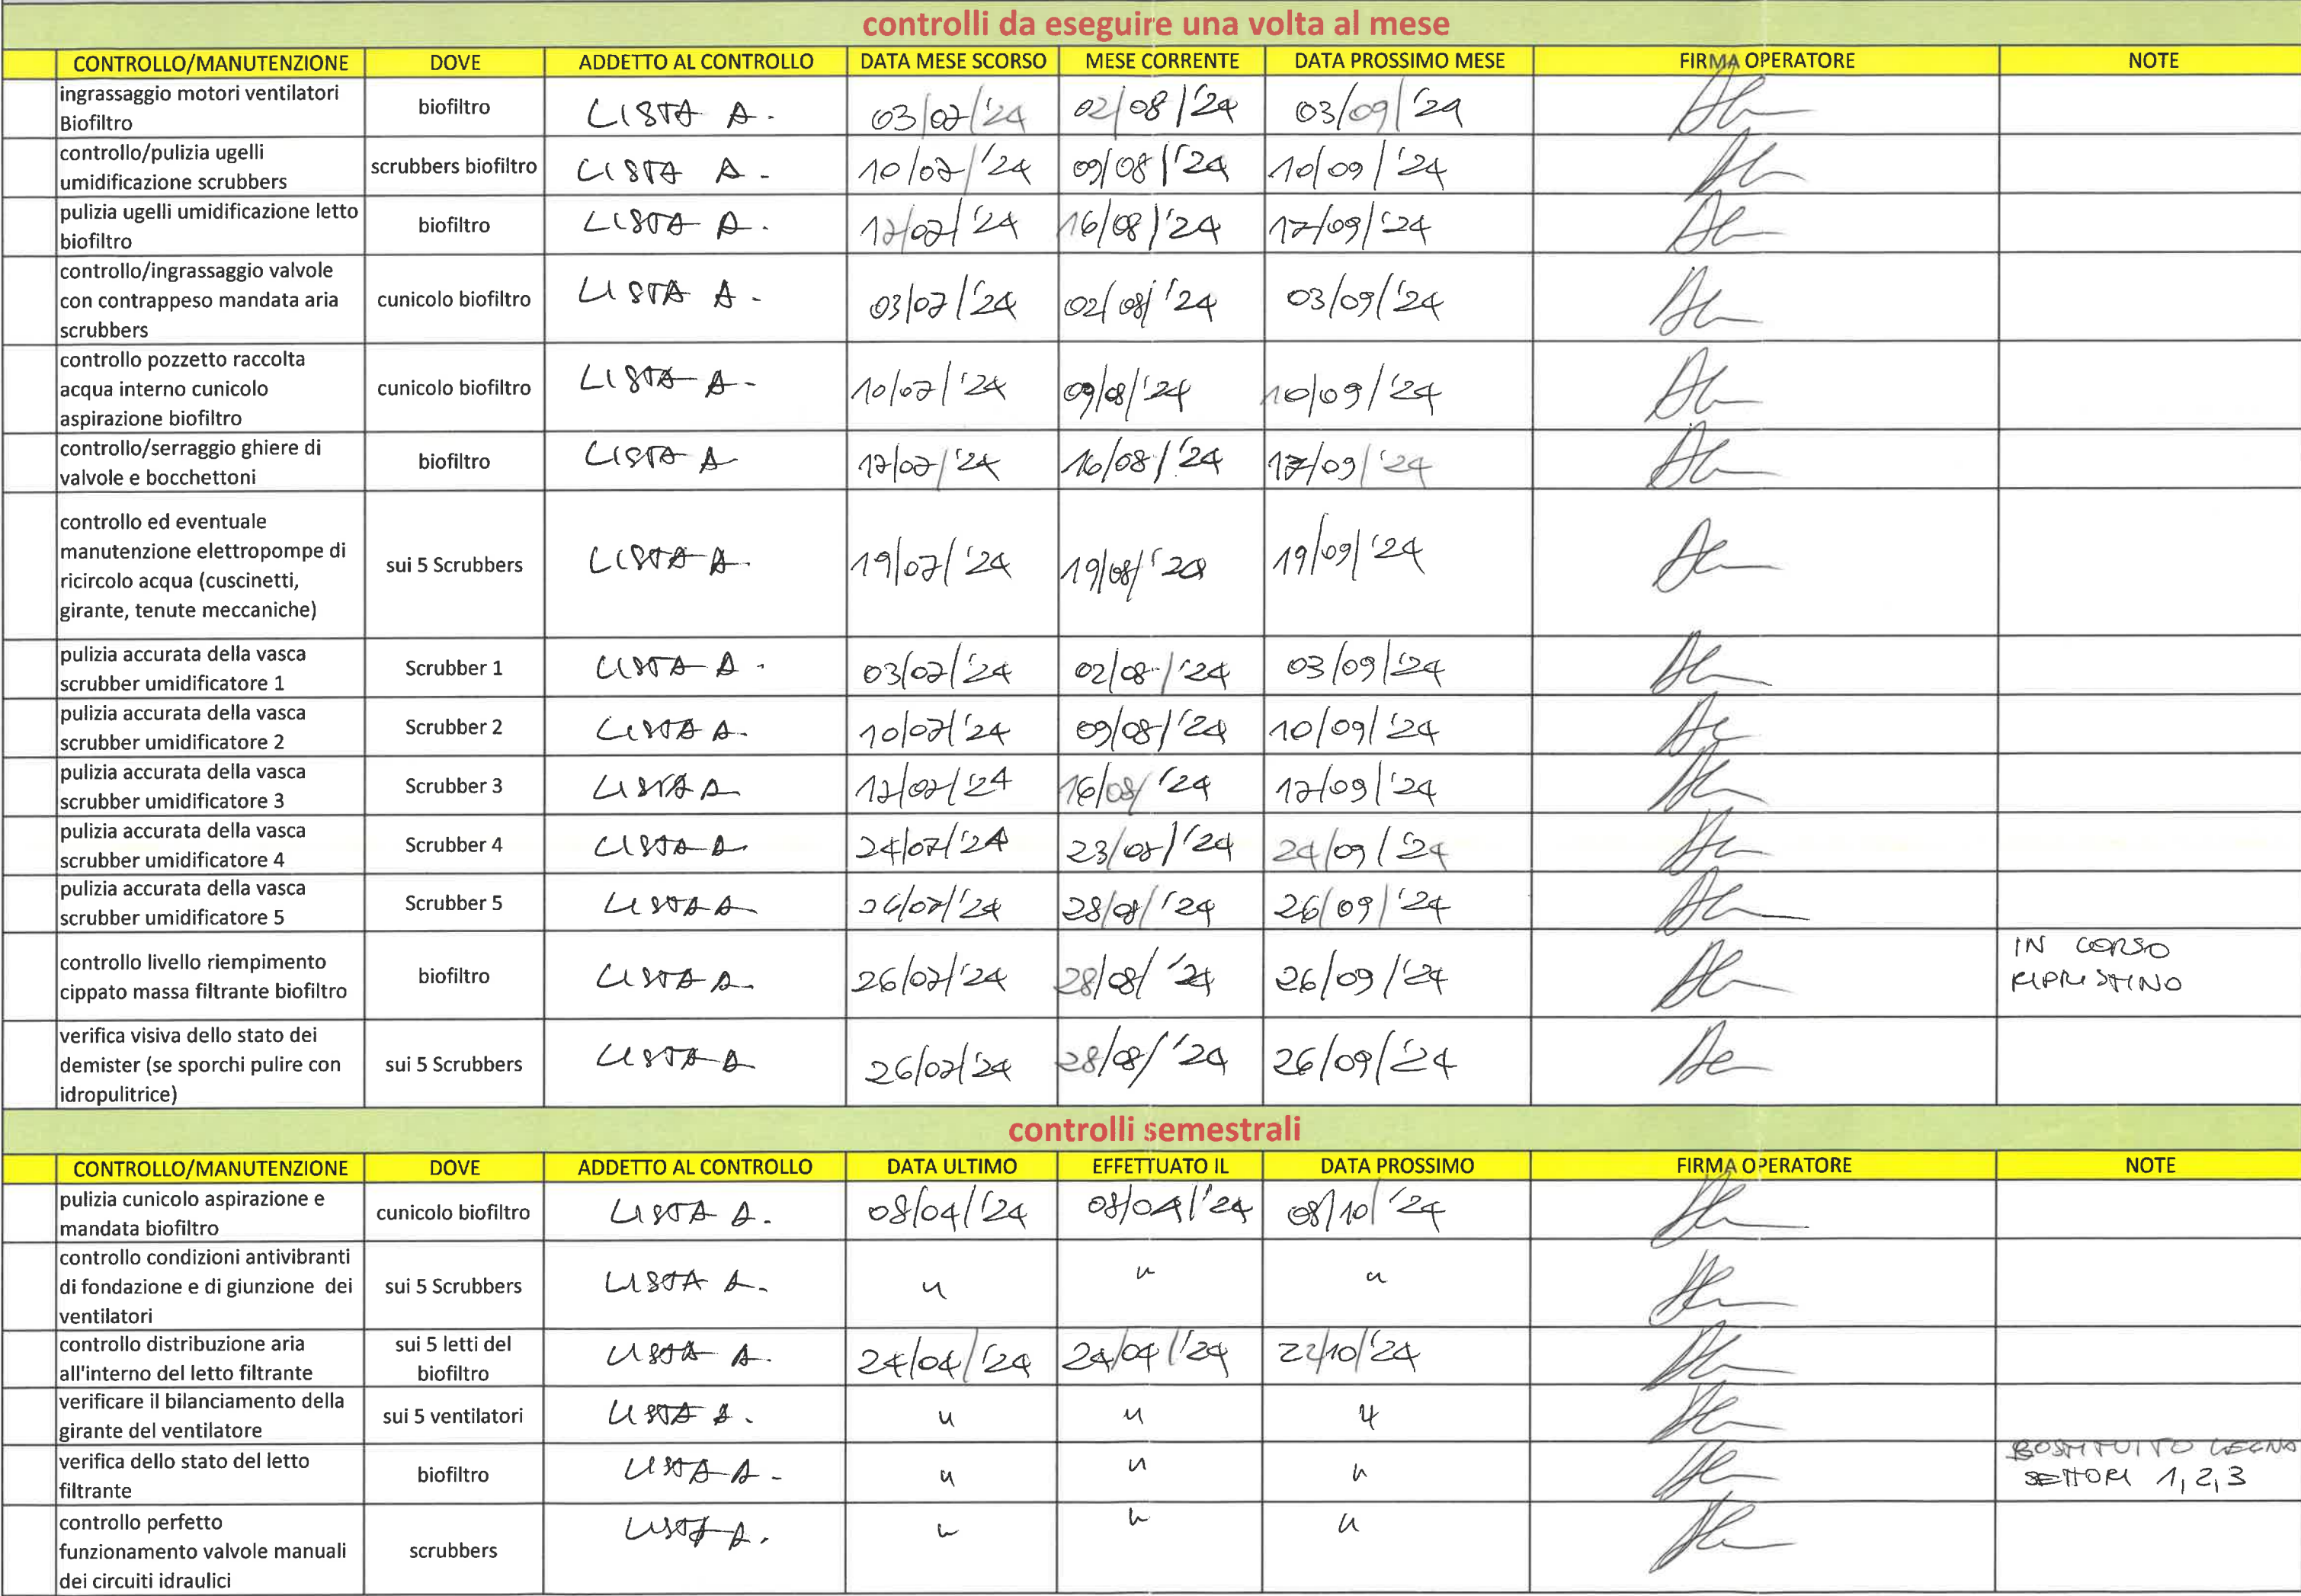 controlli da eseguire una volta al mese
CONTROLLO/MANUTENZIONE DOVE ADDETTO AL CONTROLLO DATA MESE SCORSO MESE CORRENTE DATA PROSSIMO MESE FIRMA OPERATORE NOTE
ingrassaggio motori ventilatori
Biofiltro
biofiltro LISTA A. 03/07/'24 02/08/'24 03/09/'24
controllo/pulizia ugelli
umidificazione scrubbers
scrubbers biofiltro LISTA A. 10/07/'24 09/08/'24 10/09/'24
pulizia ugelli umidificazione letto
biofiltro
biofiltro LISTA A. 17/07/'24 16/08/'24 17/09/'24
controllo/ingrassaggio valvole
con contrappeso mandata aria
scrubbers
cunicolo biofiltro LISTA A. 03/07/'24 02/08/'24 03/09/'24
controllo pozzetto raccolta
acqua interno cunicolo
aspirazione biofiltro
cunicolo biofiltro LISTA A. 10/07/'24 09/08/'24 10/09/'24
controllo/serraggio ghiere di
valvole e bocchettoni
biofiltro LISTA A 17/07/'24 16/08/'24 17/09/'24
controllo ed eventuale
manutenzione elettropompe di
ricircolo acqua (cuscinetti,
girante, tenute meccaniche)
sui 5 Scrubbers LISTA A. 19/07/'24 19/08/'24 19/09/'24
pulizia accurata della vasca
scrubber umidificatore 1
Scrubber 1 LISTA A. 03/07/'24 02/08/'24 03/09/'24
pulizia accurata della vasca
scrubber umidificatore 2
Scrubber 2 LISTA A. 10/07/'24 09/08/'24 10/09/'24
pulizia accurata della vasca
scrubber umidificatore 3
Scrubber 3 LISTA A 17/07/'24 16/08/'24 17/09/'24
pulizia accurata della vasca
scrubber umidificatore 4
Scrubber 4 LISTA A 24/07/'24 23/08/'24 24/09/'24
pulizia accurata della vasca
scrubber umidificatore 5
Scrubber 5 LISTA A 26/07/'24 28/08/'24 26/09/'24
controllo livello riempimento
cippato massa filtrante biofiltro
biofiltro LISTA A. 26/07/'24 28/08/'24 26/09/'24
IN CORSO
RIPRISTINO
verifica visiva dello stato dei
demister (se sporchi pulire con
idropulitrice)
sui 5 Scrubbers LISTA A 26/07/'24 28/08/'24 26/09/'24
controlli semestrali
CONTROLLO/MANUTENZIONE DOVE ADDETTO AL CONTROLLO DATA ULTIMO EFFETTUATO IL DATA PROSSIMO FIRMA OPERATORE NOTE
pulizia cunicolo aspirazione e
mandata biofiltro
cunicolo biofiltro LISTA A. 08/04/'24 08/04/'24 08/10/'24
controllo condizioni antivibranti
di fondazione e di giunzione dei
ventilatori
sui 5 Scrubbers LISTA A. " " "
controllo distribuzione aria
all'interno del letto filtrante
sui 5 letti del
biofiltro
LISTA A. 24/04/'24 24/04/'24 22/10/'24
verificare il bilanciamento della
girante del ventilatore
sui 5 ventilatori LISTA A. " " "
verifica dello stato del letto
filtrante
biofiltro LISTA A. " " "
SOSTITUITO LEGNO
SETTORI 1, 2, 3
controllo perfetto
funzionamento valvole manuali
dei circuiti idraulici
scrubbers LISTA A. " " "